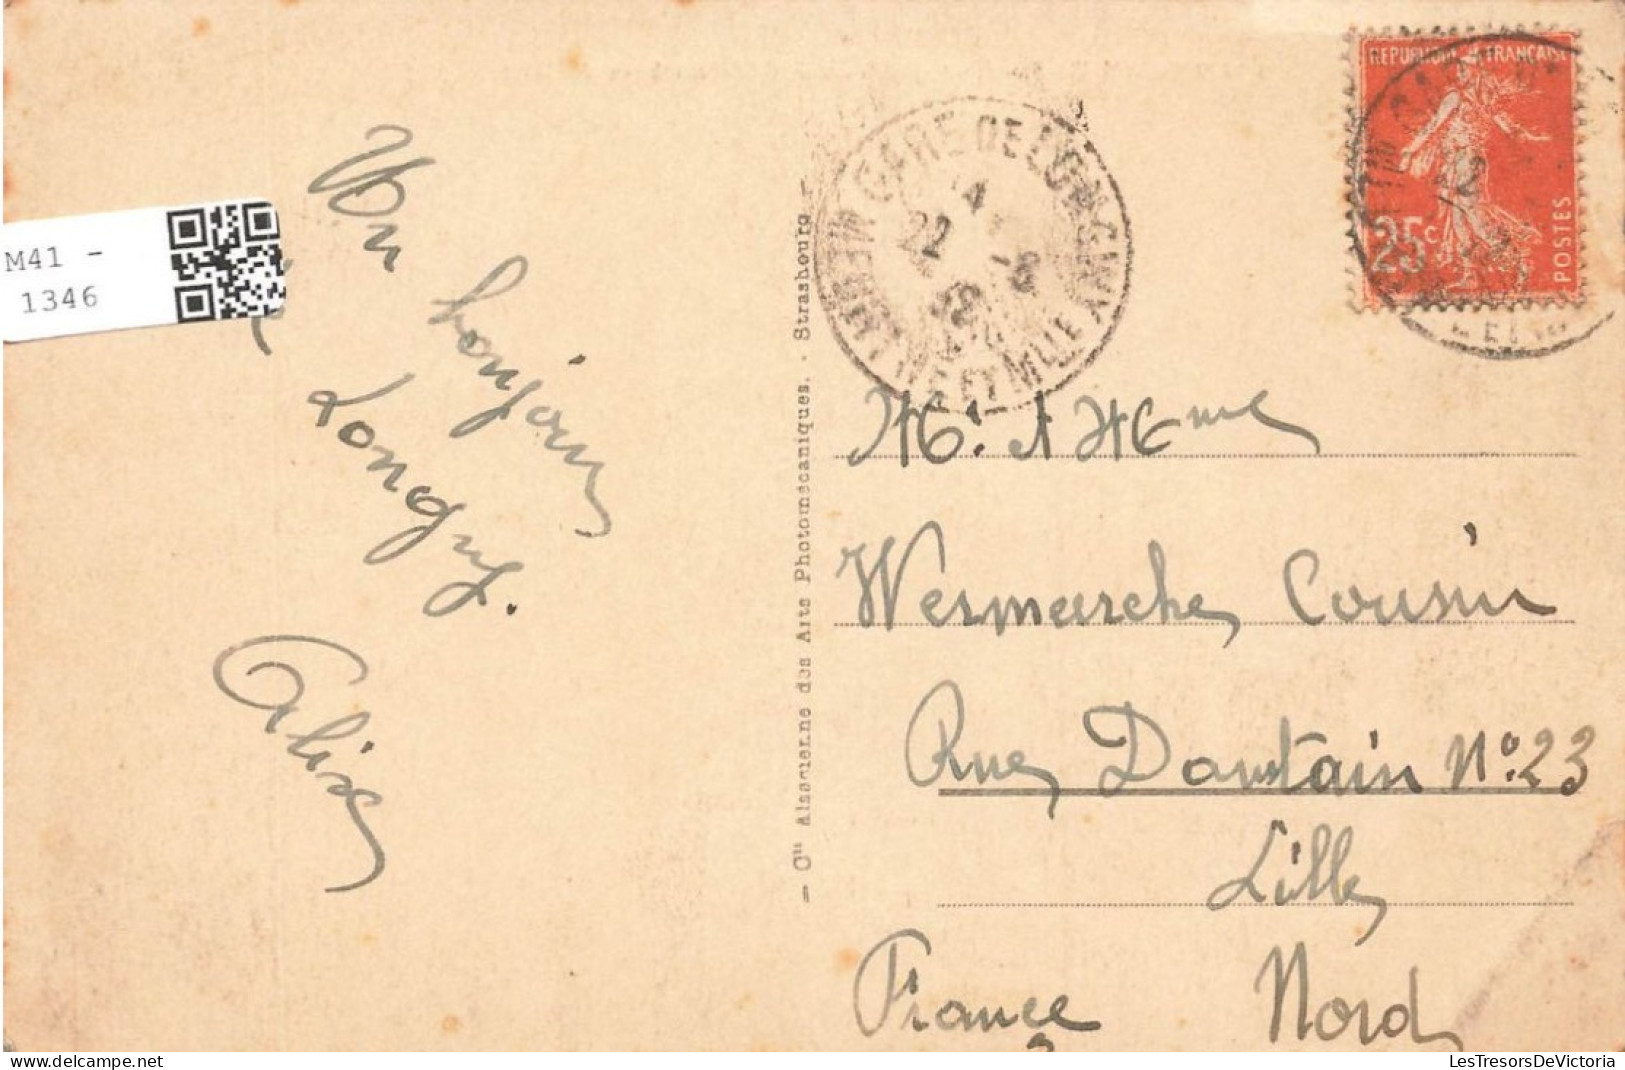 M41 -
1346
Un bonjour
Longwy.
Alice
Cie Alsacienne des Arts Photomécaniques. - Strasbourg
GARE DE LONGWY
MEURTHE ET MLLE
22
REPUBLIQUE FRANÇAISE
25c
POSTES
22
M. & Mme
Wermersche Cousin
Rue Dautain No. 23
Lille
France Nord
LesTresorsDeVictoria
www.delcampe.net